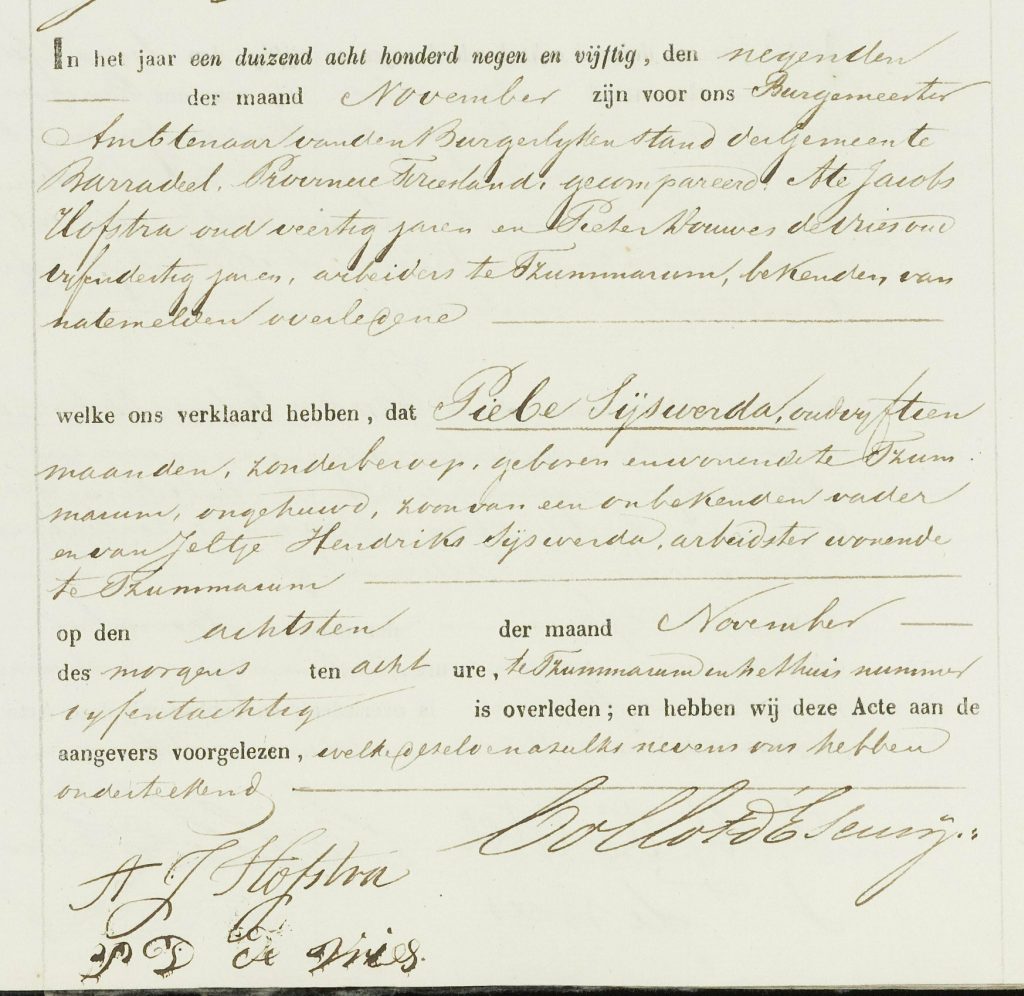 In het jaar een duizend acht honderd negen en vijftig, den negenden
der maand November zijn voor ons Burgemeester
Ambtenaar van den Burgerlyken stand der Gemeente
Barradeel, Provincie Friesland, gecompareerd, Ate Jacobs
Hofstra oud veertig jaren en Pieter Douwes de Vries oud
vyfendertig jaren, arbeiders te Tzummarum, bekenden van
natemelden overledene
welke ons verklaard hebben, dat Piebe Sijswerda, oud vyftien
maanden, zonder beroep, geboren en wonende te Tzum
marum, ongehuwd, zoon van een onbekenden vader
en van Jeltje Hendriks Sijswerda, arbeidster wonende
te Tzummarum
op den achtsten der maand November
des morgens ten acht ure, te Tzummarum in het huis nummer
vyfentachtig is overleden; en hebben wij deze Acte aan de
aangevers voorgelezen, welke dezelve nazulks nevens ons hebben
onderteekend
Collot d'Escury
A J Hofstra
P D de Vries.